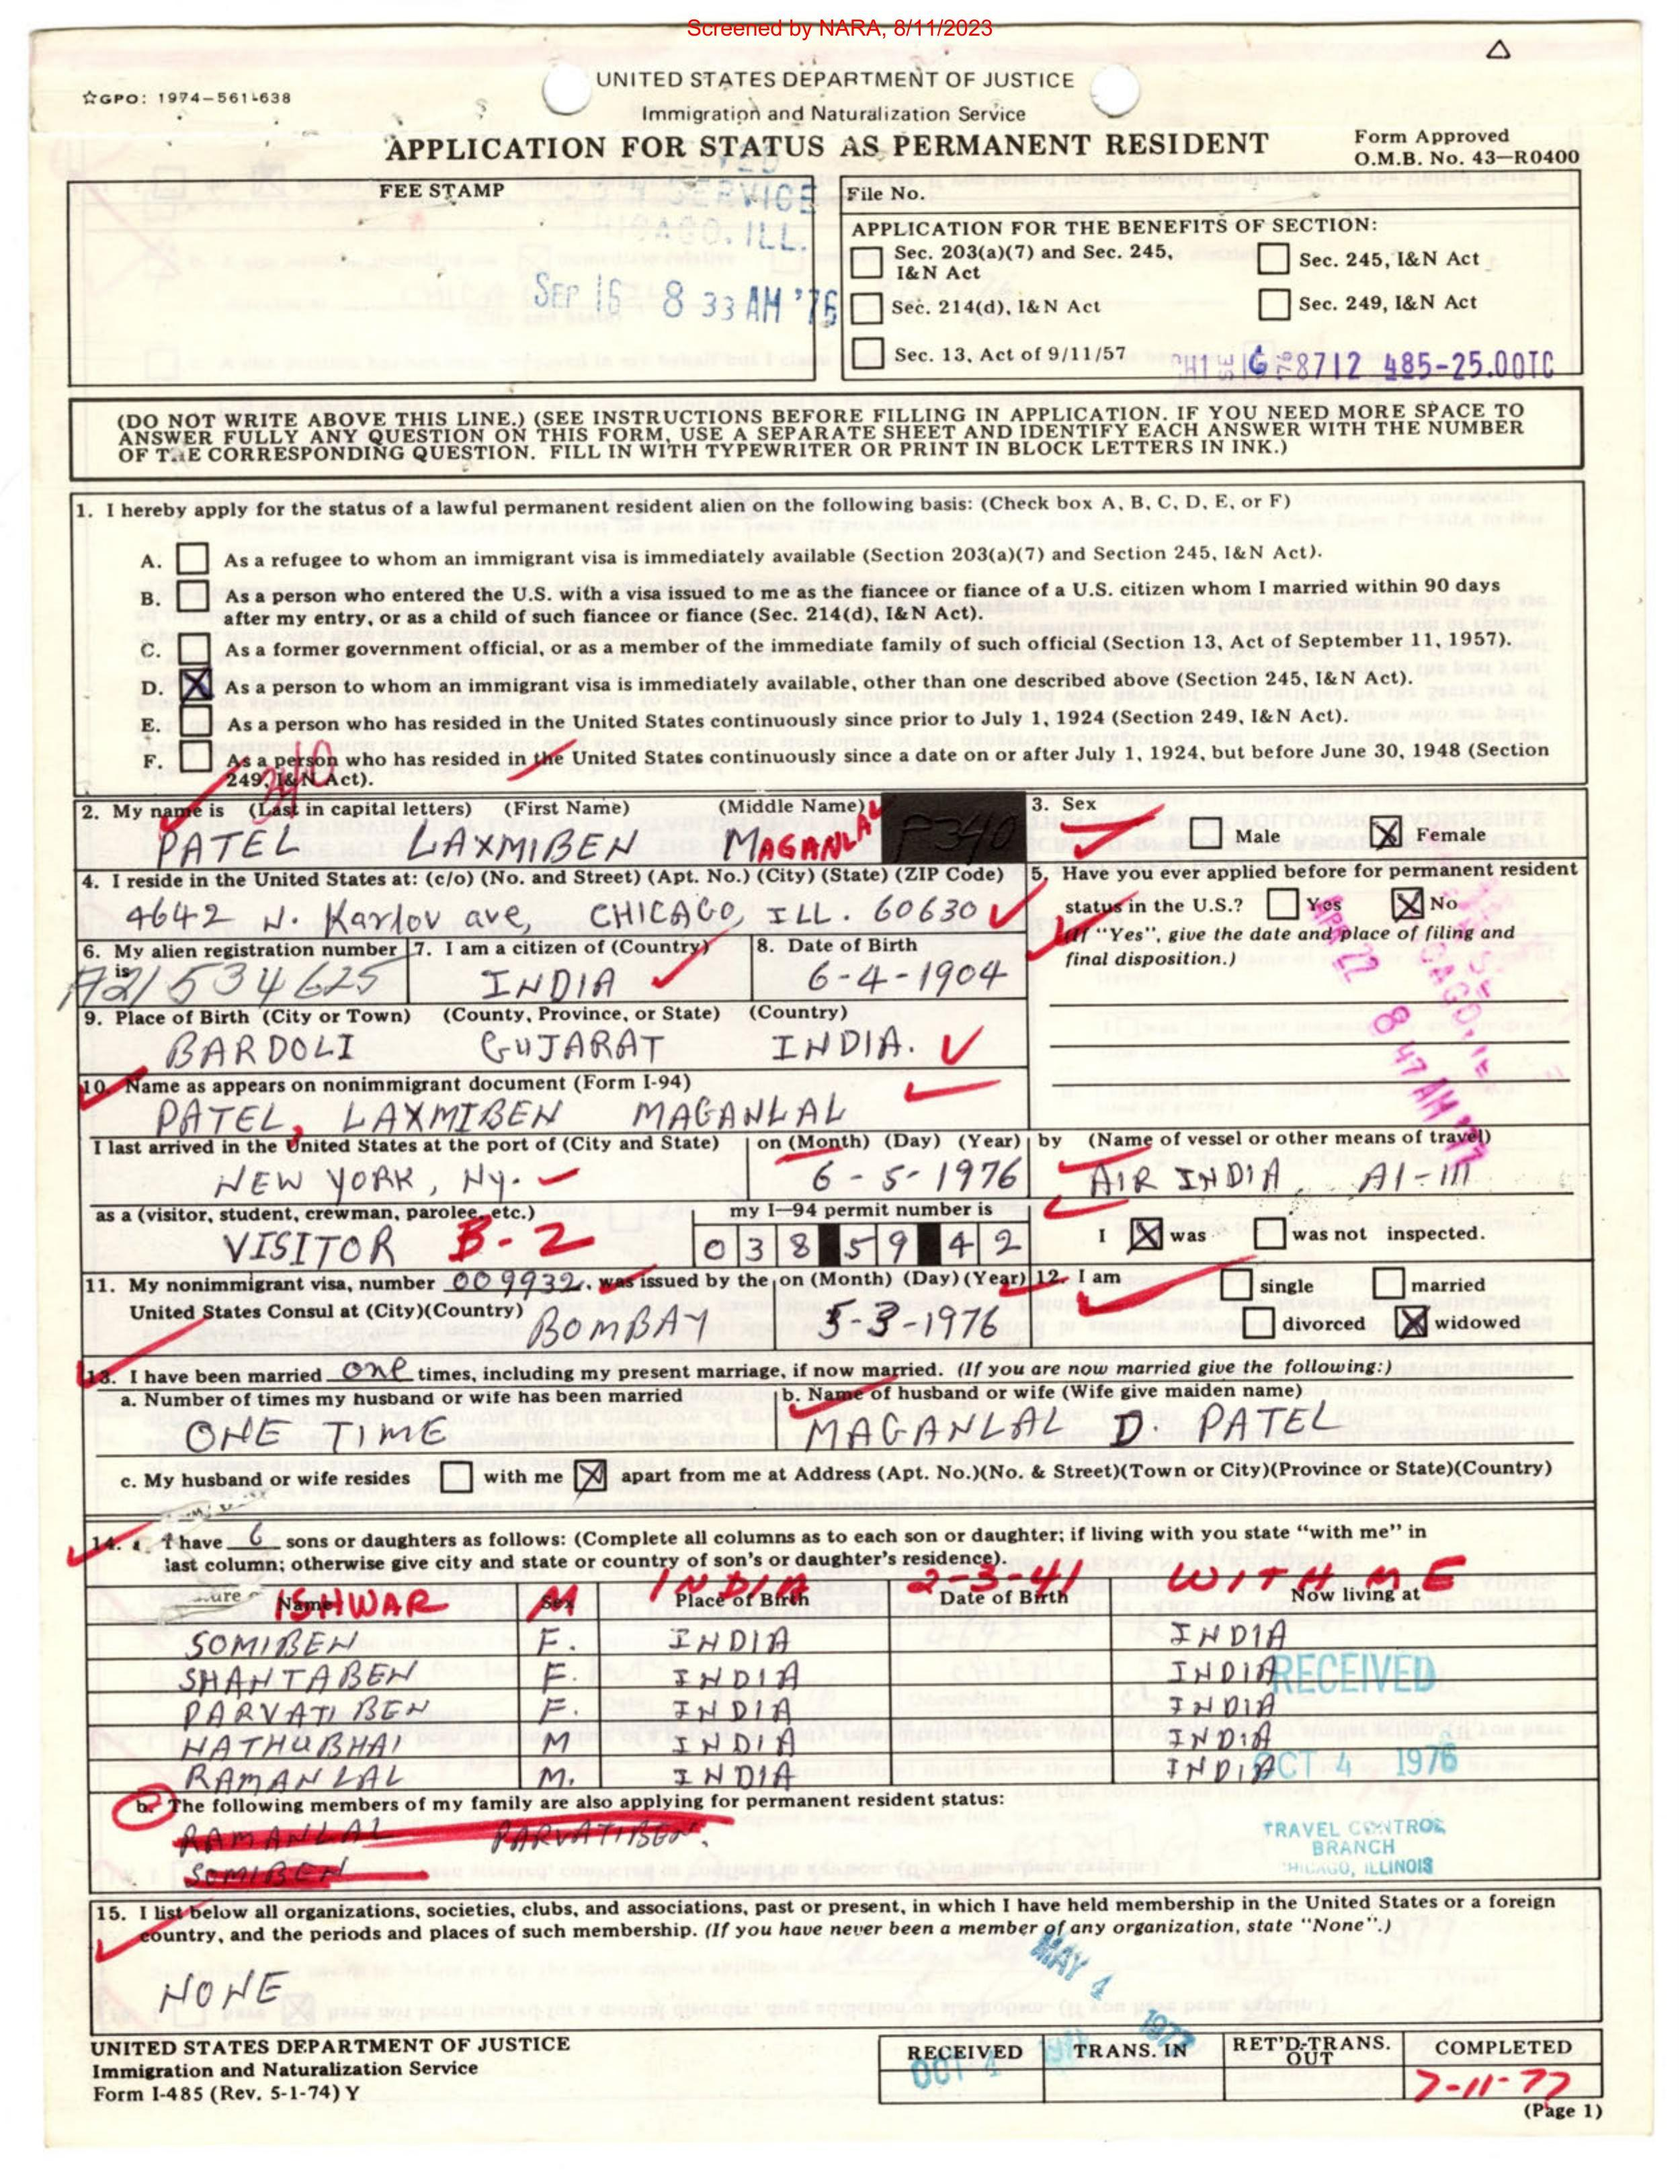 Screened by NARA, 8/11/2023
☆GPO: 1974-561-638
UNITED STATES DEPARTMENT OF JUSTICE
Immigration and Naturalization Service
APPLICATION FOR STATUS AS PERMANENT RESIDENT
Form Approved
O.M.B. No. 43-R0400
FEE STAMP
SERVICE
ILL.
SEP 16 8 33 AM '76
File No.
APPLICATION FOR THE BENEFITS OF SECTION:
Sec. 203(a)(7) and Sec. 245, I&N Act
Sec. 245, I&N Act
Sec. 214(d), I&N Act
Sec. 249, I&N Act
Sec. 13, Act of 9/11/57
8712 485-25.00TC
(DO NOT WRITE ABOVE THIS LINE.) (SEE INSTRUCTIONS BEFORE FILLING IN APPLICATION. IF YOU NEED MORE SPACE TO
ANSWER FULLY ANY QUESTION ON THIS FORM, USE A SEPARATE SHEET AND IDENTIFY EACH ANSWER WITH THE NUMBER
OF THE CORRESPONDING QUESTION. FILL IN WITH TYPEWRITER OR PRINT IN BLOCK LETTERS IN INK.)
1. I hereby apply for the status of a lawful permanent resident alien on the following basis: (Check box A, B, C, D, E, or F)
A. As a refugee to whom an immigrant visa is immediately available (Section 203(a)(7) and Section 245, I&N Act).
B. As a person who entered the U.S. with a visa issued to me as the fiancee or fiance of a U.S. citizen whom I married within 90 days
after my entry, or as a child of such fiancee or fiance (Sec. 214(d), I&N Act).
C. As a former government official, or as a member of the immediate family of such official (Section 13, Act of September 11, 1957).
D. X As a person to whom an immigrant visa is immediately available, other than one described above (Section 245, I&N Act).
E. As a person who has resided in the United States continuously since prior to July 1, 1924 (Section 249, I&N Act).
F. As a person who has resided in the United States continuously since a date on or after July 1, 1924, but before June 30, 1948 (Section
249, I&N Act).
2. My name is (Last in capital letters) (First Name) (Middle Name)
PATEL LAXMIBEN MAGANLAL P340
3. Sex
Male X Female
4. I reside in the United States at: (c/o) (No. and Street) (Apt. No.) (City) (State) (ZIP Code)
4642 N. Karlov ave, CHICAGO, ILL. 60630
5. Have you ever applied before for permanent resident
status in the U.S.? Yes X No
(If "Yes", give the date and place of filing and
final disposition.)
APR 22 8 47 AM '77
6. My alien registration number is
A21 534 625
7. I am a citizen of (Country)
INDIA
8. Date of Birth
6-4-1904
9. Place of Birth (City or Town) (County, Province, or State) (Country)
BARDOLI GUJARAT INDIA.
10. Name as appears on nonimmigrant document (Form I-94)
PATEL, LAXMIBEN MAGANLAL
I last arrived in the United States at the port of (City and State)
NEW YORK, Ny.
on (Month) (Day) (Year)
6-5-1976
by (Name of vessel or other means of travel)
AIR INDIA, AI-111
as a (visitor, student, crewman, parolee, etc.)
VISITOR B-2
my I-94 permit number is
038 59 42
I X was was not inspected.
11. My nonimmigrant visa, number 009932. was issued by the
United States Consul at (City)(Country) BOMBAY
on (Month) (Day) (Year)
5-3-1976
12. I am single married
divorced X widowed
13. I have been married one times, including my present marriage, if now married. (If you are now married give the following:)
a. Number of times my husband or wife has been married
ONE TIME
b. Name of husband or wife (Wife give maiden name)
MAGANLAL D. PATEL
c. My husband or wife resides with me X apart from me at Address (Apt. No.)(No. & Street)(Town or City)(Province or State)(Country)
14. I have 6 sons or daughters as follows: (Complete all columns as to each son or daughter; if living with you state "with me" in
last column; otherwise give city and state or country of son's or daughter's residence).
Name Sex Place of Birth Date of Birth Now living at
ISHWAR M INDIA 2-3-41 WITH ME
SOMIBEN F. INDIA INDIA
SHANTABEN F. INDIA INDIA
PARVATIBEN F. INDIA INDIA
NATHUBHAI M INDIA INDIA
RAMANLAL M. INDIA INDIA
RECEIVED
OCT 4 1976
TRAVEL CONTROL
BRANCH
CHICAGO, ILLINOIS
b. The following members of my family are also applying for permanent resident status:
RAMANLAL PARVATIBEN.
SOMIBEN
15. I list below all organizations, societies, clubs, and associations, past or present, in which I have held membership in the United States or a foreign
country, and the periods and places of such membership. (If you have never been a member of any organization, state "None".)
NONE
MAY 4 1977
UNITED STATES DEPARTMENT OF JUSTICE
Immigration and Naturalization Service
Form I-485 (Rev. 5-1-74) Y
RECEIVED TRANS. IN RET'D-TRANS. OUT COMPLETED
OCT 4
7-11-77
(Page 1)